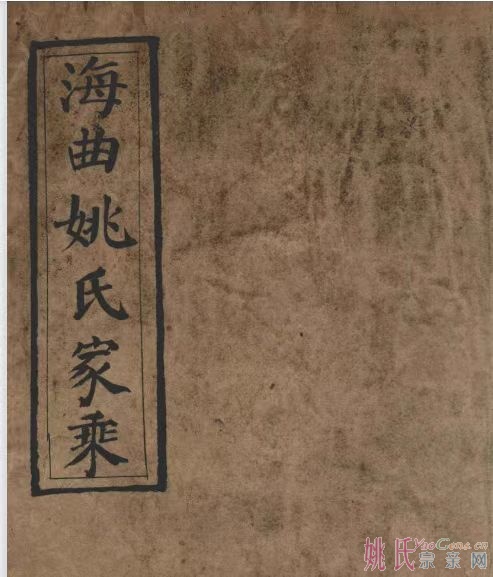 海曲姚氏家乘
姚氏YaoGens.cn
宗亲网